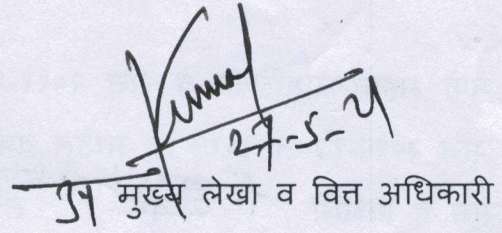 27-5-21
उप मुख्य लेखा व वित्त अधिकारी